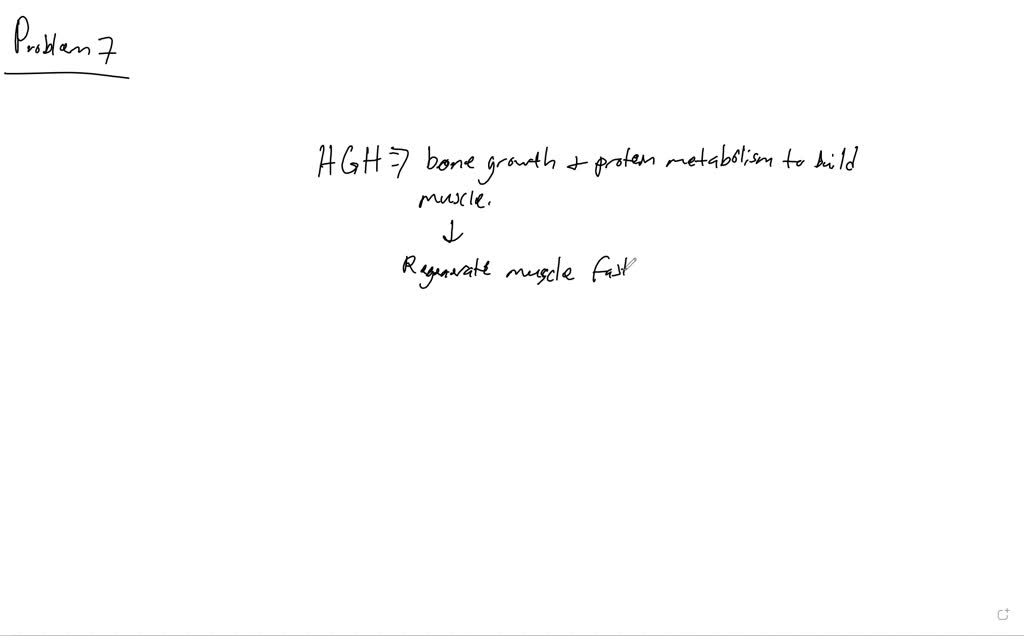 Problem 7
HGH ⇒ bone growth + protein metabolism to build
muscle.
↓
Regenerate muscle fast